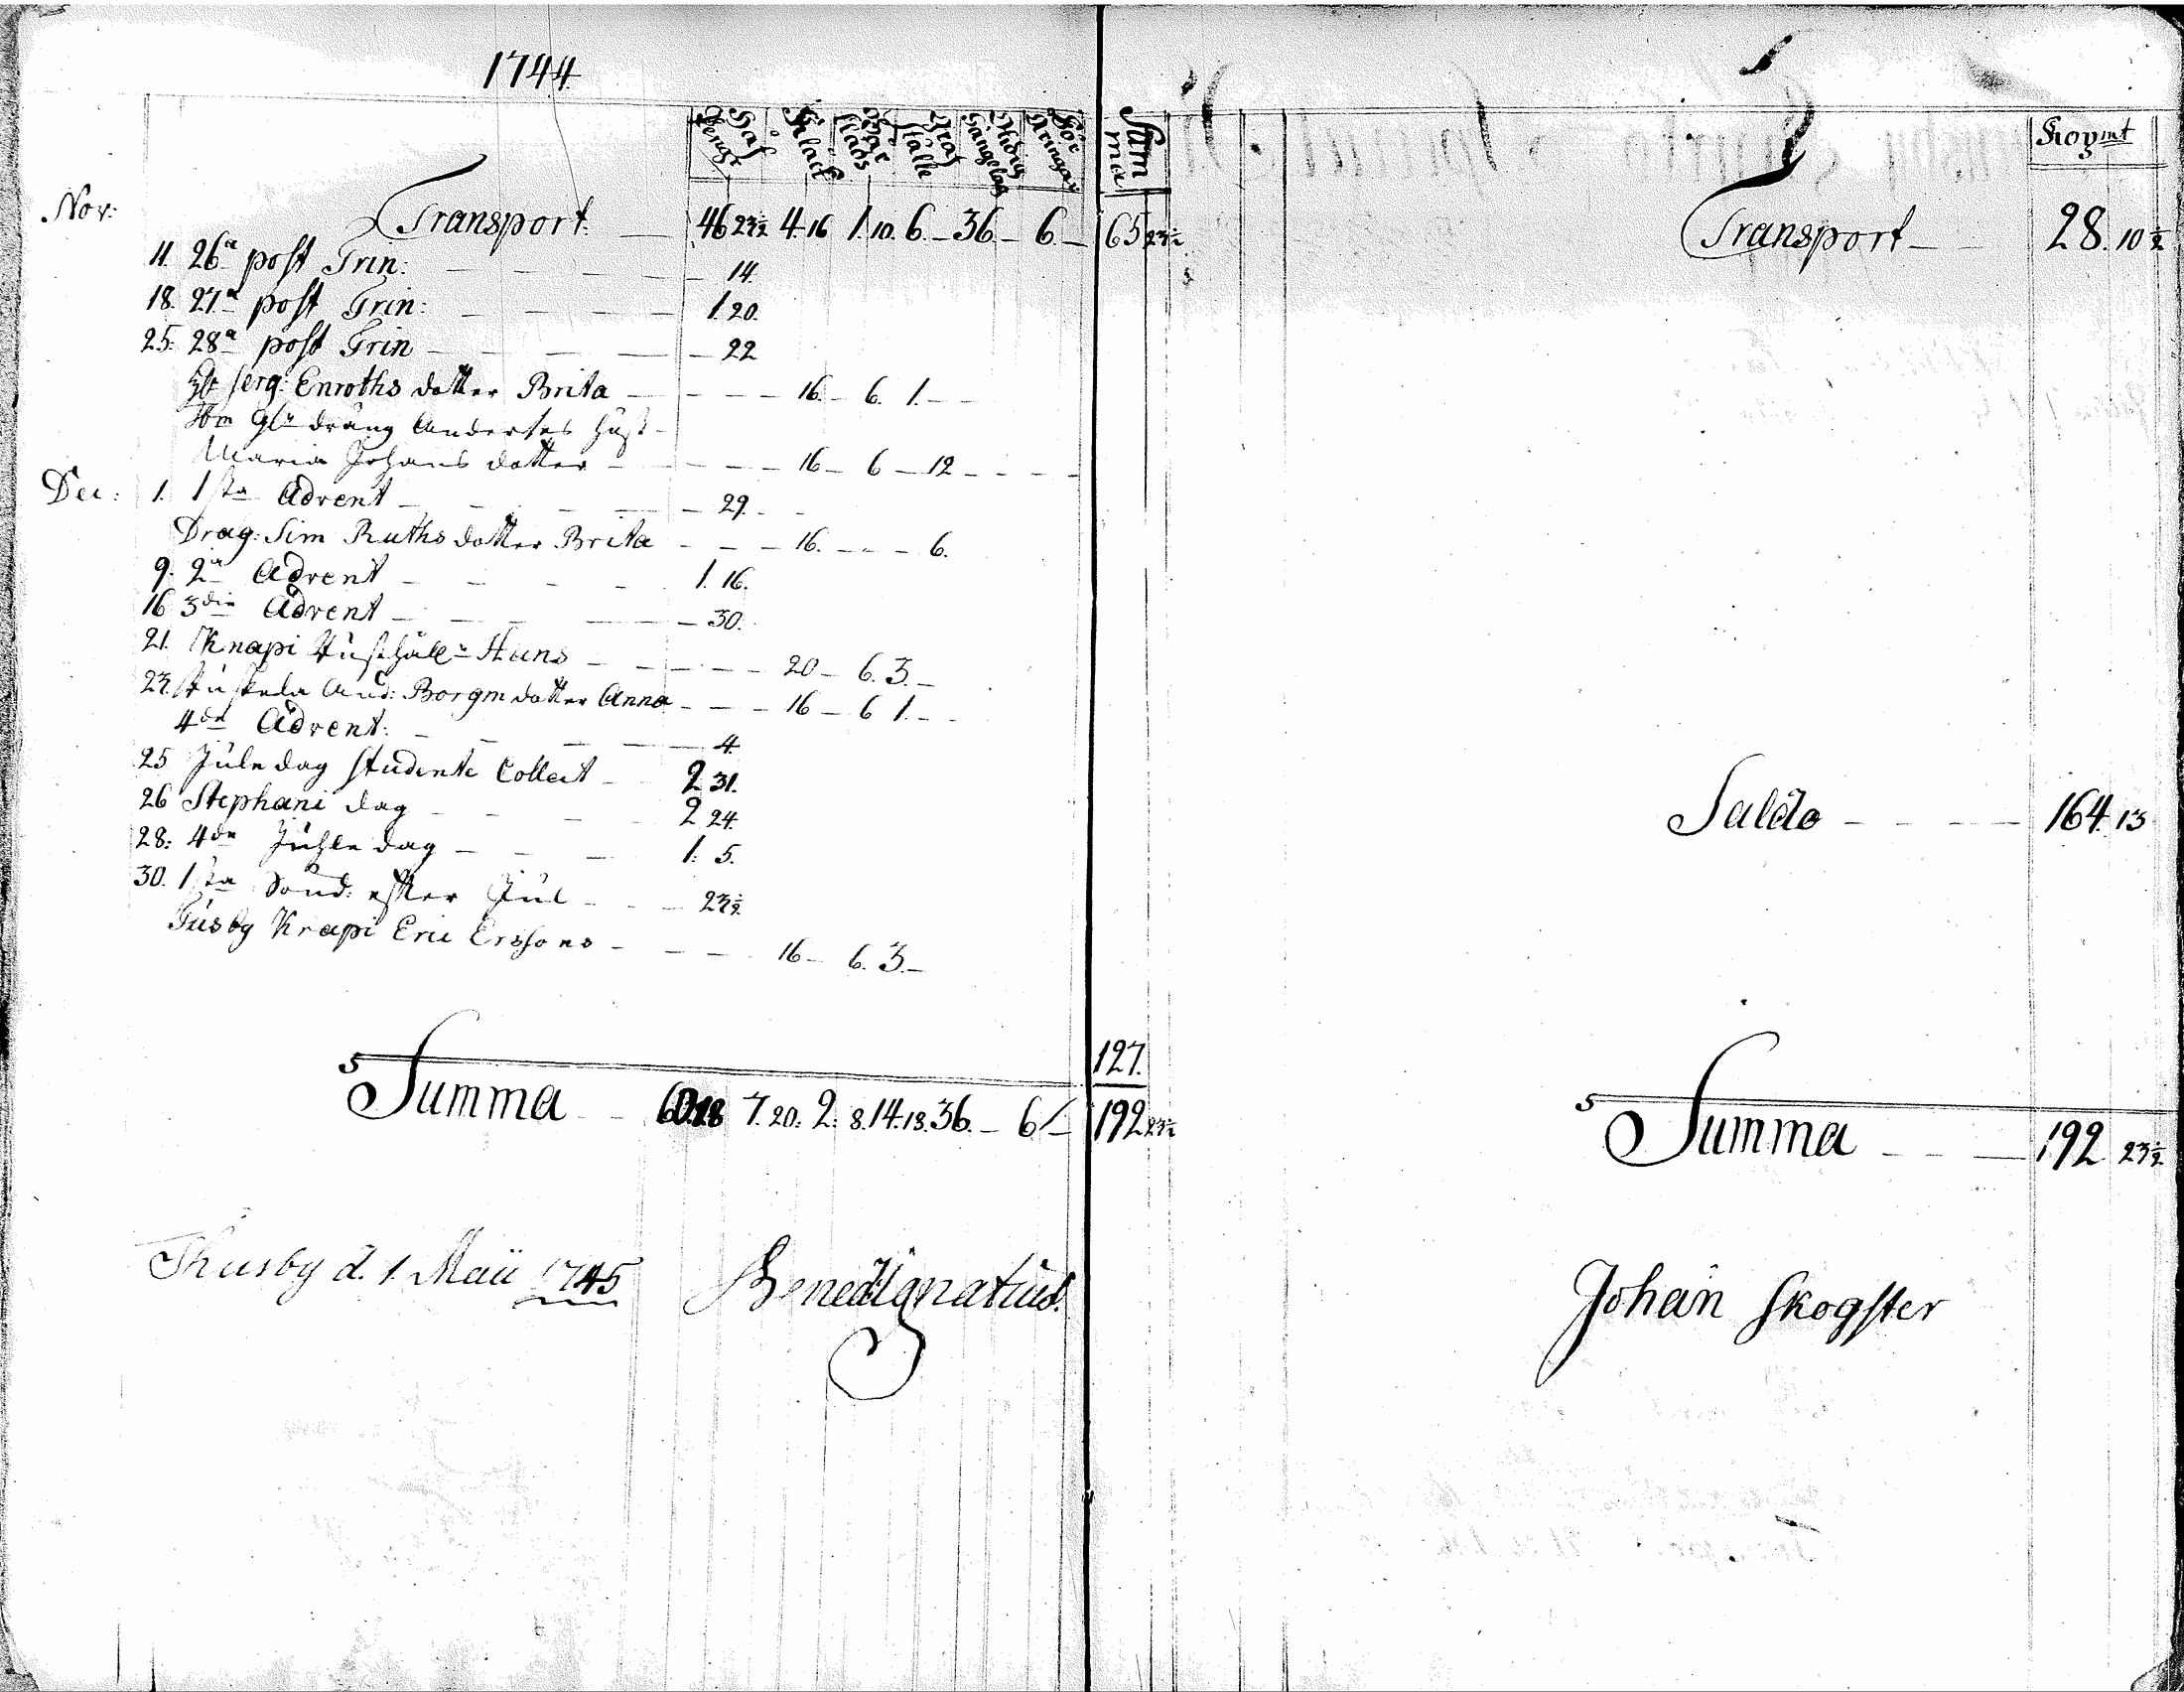 1744
Håf Pengr Klåck Bår Klädr Graf ställe Hudrig Hångelag Förr Äringar Summa
Nov: Transport. 46 23½ 4.16 1.10. 6.— 36.— 6.— 65 23½
11. 26a post Trin: — 14.
18. 27a post Trin: 1. 20.
25. 28a post Trin — 22
serg: Enroths dotter Brita — 16. — 6. 1.—
dräng Anderses hust—
Maria Johans dotter — 16 — 6 — 12 —
Dec: 1. 1sta Advent — 29.
Drag: Sim Ruths dotter Brita — 16. — 6.
9. 2a Advent — 1. 16.
16 3die Advent — 30.
21. Knapi Hans — 20 — 6. 3.—
23. And: Borgm dotter Anna — 16 — 6 1.—
4de Advent: — 4.
25 Jule dag studente Collect — 2 31.
26 Stephani dag — 2 24.
28: 4de Juhle dag — 1: 5.
30. 1sta Sönd: efter Jul — 23½
Tusby Knapi Eric Erssons — 16 — 6. 3.—
127.
Summa 60.28 7. 20: 2: 8. 14. 18. 36.— 6.— 192 23½
Thusby d. 1. Maii 1745 Bened Ignatius.
Koymt
Transport — 28. 10½
Saldo — 164. 13
Summa — 192 23½
Johan Skogster